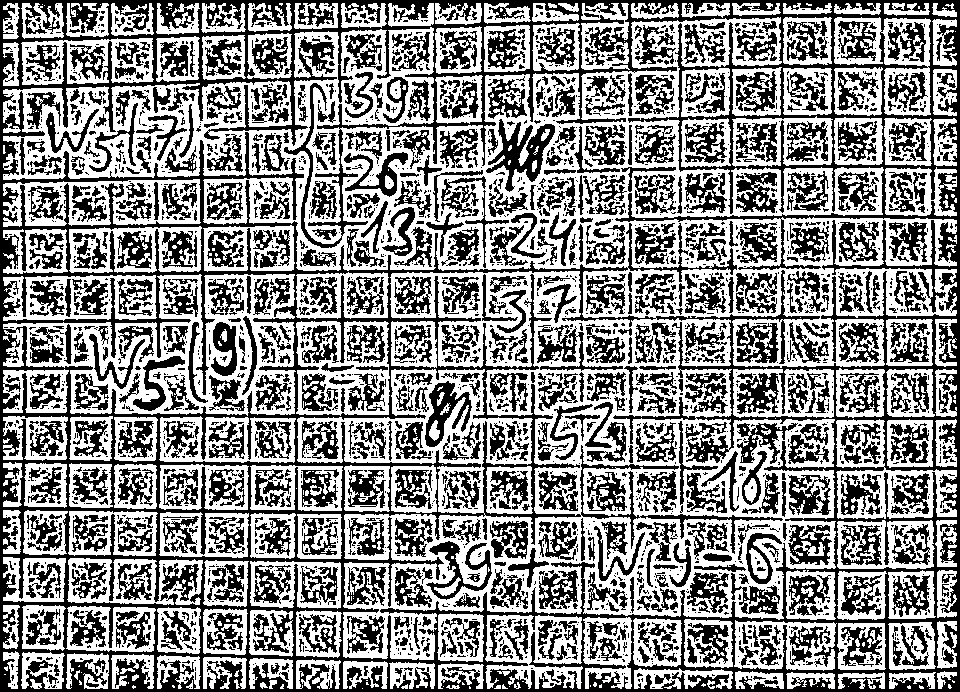 W5(7) = { 39
26 +
13 + 24 =
37
W5(9) =
52
18
39 + W(9-6